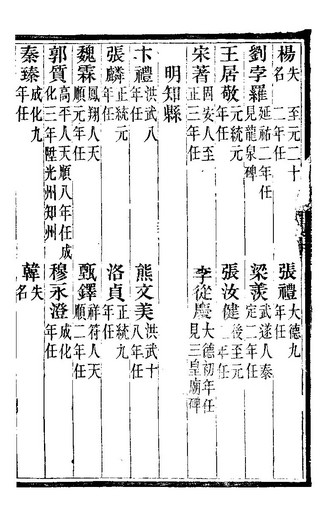 楊失名至元二十二年任 張禮大德九年任
劉孛羅延祐二年任見龍泉碑 梁羨武遂人泰定二年任
王居敬元統元年任 張汝健後至元年任
宋著固安人至正三年任 李從慶大德初年任見三皇廟碑
明知縣
卞禮洪武八年任 熊文美洪武十八年任
張麟正統元年任 洛貞正統九年任
魏霖鳳翔人天順元年任 甄鐸祥符人天順二年任
郭質高平人天順八年任成化三年陞光州知州 穆永澄成化年任
秦臻成化九年任 韓失名